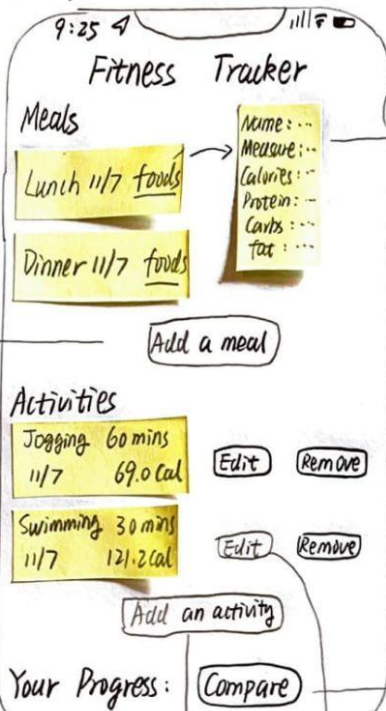 9:25
Fitness Tracker
Meals
Lunch 11/7 foods
Name: ...
Measure: ...
Calories: ...
Protein: ...
Carbs: ...
fat: ...
Dinner 11/7 foods
Add a meal
Activities
Jogging 60 mins
11/7 69.0 Cal
Edit Remove
Swimming 30 mins
11/7 121.2 Cal
Edit Remove
Add an activity
Your Progress: Compare